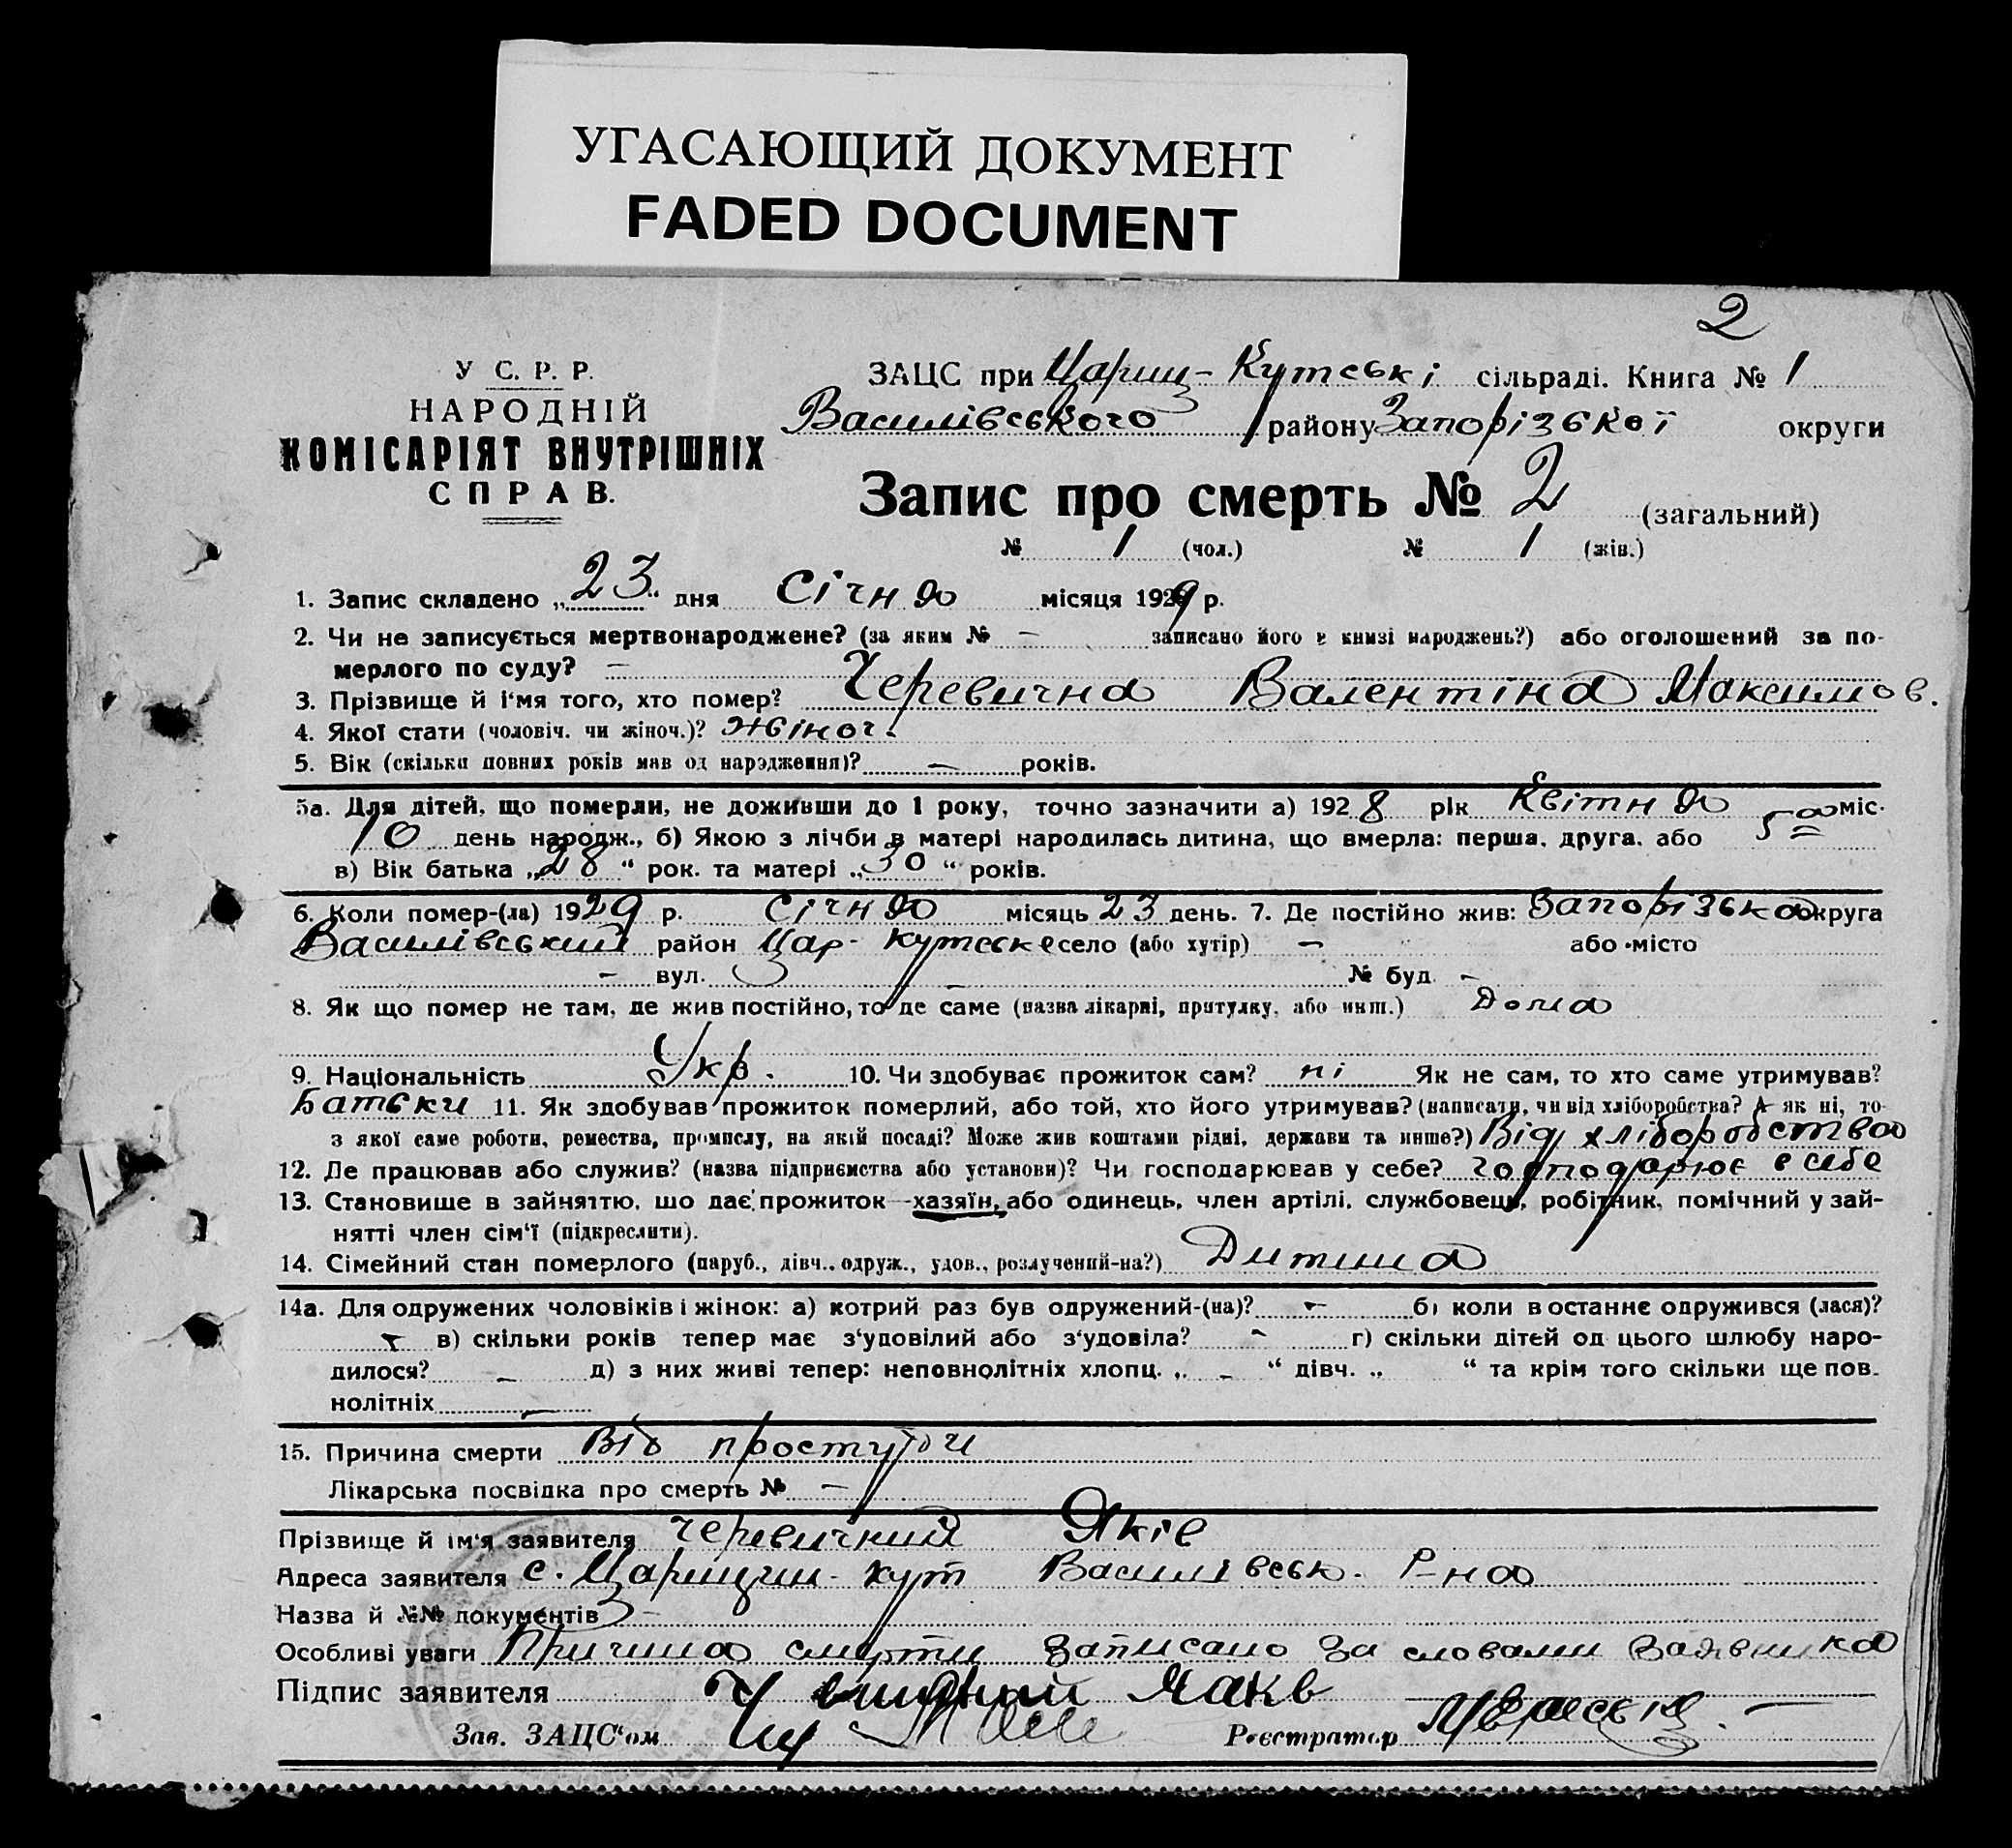 УГАСАЮЩИЙ ДОКУМЕНТ
FADED DOCUMENT
2
У С. Р. Р.
НАРОДНІЙ
КОМІСАРІЯТ ВНУТРІШНІХ
СПРАВ.
ЗАЦС при Цариц-Кутські сільраді. Книга № 1
Василівського району Запорізької округи
Запис про смерть № 2 (загальний)
№ 1 (чол.) № 1 (жін.)
1. Запис складено „23“ дня Січня місяця 1929 р.
2. Чи не записується мертвонароджене? (за яким № — записано його в книзі народжень?) або оголошений за по-
мерлого по суду? —
3. Прізвище й і‘мя того, хто помер? Черевична Валентіна Максимов.
4. Якої стати (чоловіч. чи жіноч.)? жіноч.
5. Вік (скільки повних років мав од народження)? — років.
5а. Для дітей, що померли, не доживши до 1 року, точно зазначити а) 1928 рік Квітня міс.
10 день народж., б) Якою з лічби в матері народилась дитина, що вмерла: перша, друга, або 5а
в) Вік батька „28“ рок. та матері „30“ років.
6. Коли помер-(ла) 1929 р. Січня місяць 23 день. 7. Де постійно жив: Запорізька округа
Василівський район Цар-Кутське село (або хутір) — або місто
— вул. — № буд. —
8. Як що помер не там, де жив постійно, то де саме (назва лікарні, притулку, або инш.) Дома
9. Національність Укр. 10. Чи здобуває прожиток сам? ні Як не сам, то хто саме утримував?
Батьки 11. Як здобував прожиток померлий, або той, хто його утримував? (написати, чи від хліборобства? А як ні, то
з якої саме роботи, ремества, промислу, на якій посаді? Може жив коштами рідні, держави та инше?) Від хліборобства
12. Де працював або служив? (назва підприємства або установи)? Чи господарював у себе? господарює в себе
13. Становище в зайняттю, що дає прожиток—хазяїн, або одинець, член артілі, службовець, робітник, помічний у зай-
нятті член сім‘ї (підкреслити).
14. Сімейний стан померлого (паруб., дівч., одруж., удов., розлучений-на?) Дитина
14а. Для одружених чоловіків і жінок: а) котрий раз був одружений-(на)? — б) коли в останнє одружився (лася)?
— в) скільки років тепер має з‘удовілий або з‘удовіла? — г) скільки дітей од цього шлюбу наро-
дилося? — д) з них живі тепер: неповнолітніх хлопц. „ — “ дівч. „ “ та крім того скільки ще пов.
нолітніх —
15. Причина смерти Від простуди
Лікарська посвідка про смерть № —
Прізвище й ім‘я заявителя Черевичний Яків
Адреса заявителя с. Царицин-Кут Василівськ. Р-на
Назва й №№ документів —
Особливі уваги Причина смерти записано за словами Заявника
Підпис заявителя Якив
Зав. ЗАЦС‘ом Реєстратор